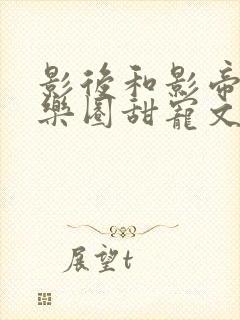 影後和影帝
樂園甜寵文
展望t